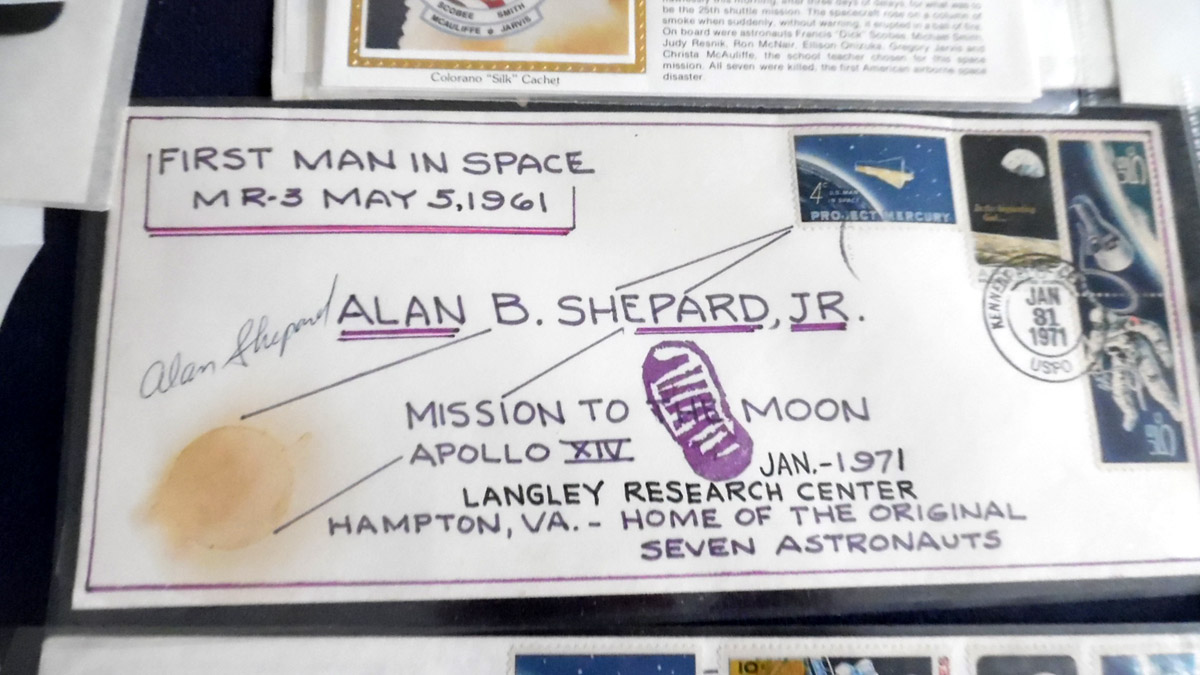 SCOBEE SMITH
McAULIFFE JARVIS
Colorano "Silk" Cachet
be the 25th shuttle mission. The spacecraft rose on a column of
smoke when suddenly, without warning, it erupted in a ball of fire.
On board were astronauts Francis "Dick" Scobee, Michael Smith,
Judy Resnik, Ron McNair, Ellison Onizuka, Gregory Jarvis and
Christa McAuliffe, the school teacher chosen for this space
mission. All seven were killed, the first American airborne space
disaster.
FIRST MAN IN SPACE
MR-3 MAY 5, 1961
4¢
U.S. MAN
IN SPACE
PROJECT MERCURY
In the beginning
God...
KENNEDY
JAN
31
1971
USPO
Alan Shepard
ALAN B. SHEPARD, JR.
MISSION TO THE MOON
APOLLO XIV
JAN.-1971
LANGLEY RESEARCH CENTER
HAMPTON, VA. - HOME OF THE ORIGINAL
SEVEN ASTRONAUTS
10¢